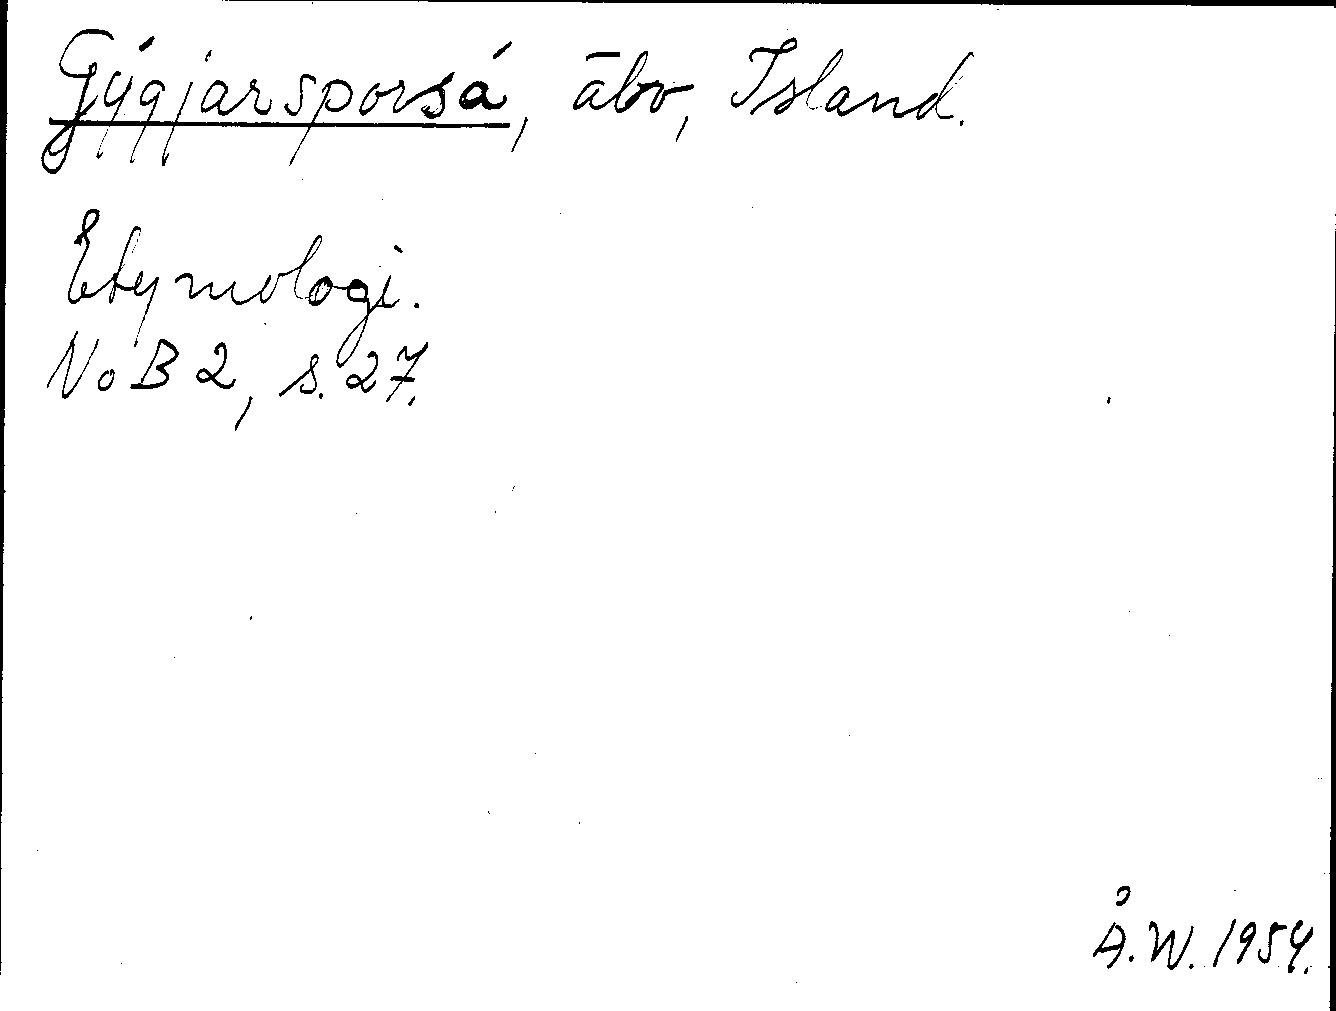 Gýgjarsporsá, åbv, Island.
Etymologi.
NoB 2, s. 27.
Å.W. 1954.